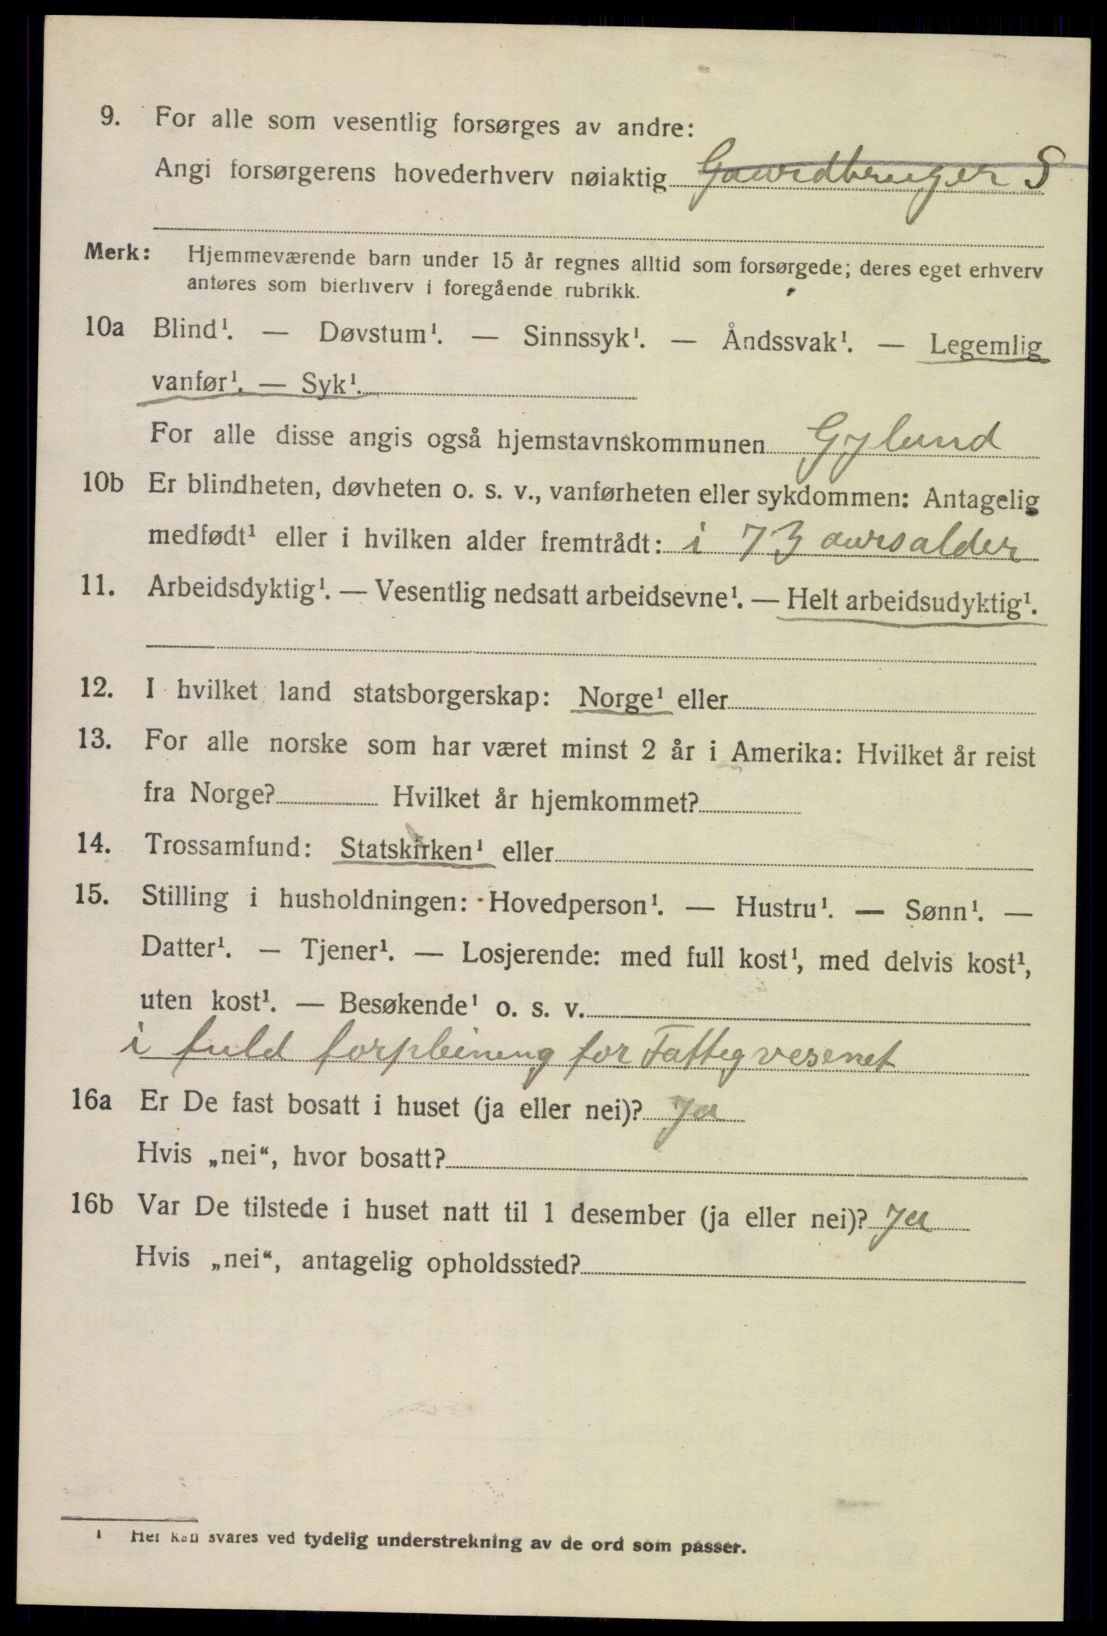 9. For alle som vesentlig forsørges av andre:
Angi forsørgerens hovederhverv nøiaktig Gaardbruger S
Merk: Hjemmeværende barn under 15 år regnes alltid som forsørgede; deres eget erhverv
anføres som bierhverv i foregående rubrikk.
10a Blind¹. — Døvstum¹. — Sinnssyk¹. — Åndssvak¹. — Legemlig
vanfør¹. — Syk¹.
For alle disse angis også hjemstavnskommunen Gyland
10b Er blindheten, døvheten o. s. v., vanførheten eller sykdommen: Antagelig
medfødt¹ eller i hvilken alder fremtrådt: i 73 aarsalder
11. Arbeidsdyktig¹. — Vesentlig nedsatt arbeidsevne¹. — Helt arbeidsudyktig¹.
12. I hvilket land statsborgerskap: Norge¹ eller
13. For alle norske som har været minst 2 år i Amerika: Hvilket år reist
fra Norge? Hvilket år hjemkommet?
14. Trossamfund: Statskirken¹ eller
15. Stilling i husholdningen: Hovedperson¹. — Hustru¹. — Sønn¹. —
Datter¹. — Tjener¹. — Losjerende: med full kost¹, med delvis kost¹,
uten kost¹. — Besøkende¹ o. s. v.
i fuld forpleining for Fattigvesenet
16a Er De fast bosatt i huset (ja eller nei)? Ja
Hvis „nei“, hvor bosatt?
16b Var De tilstede i huset natt til 1 desember (ja eller nei)? Ja
Hvis „nei“, antagelig opholdssted?
¹ Her kan svares ved tydelig understrekning av de ord som passer.